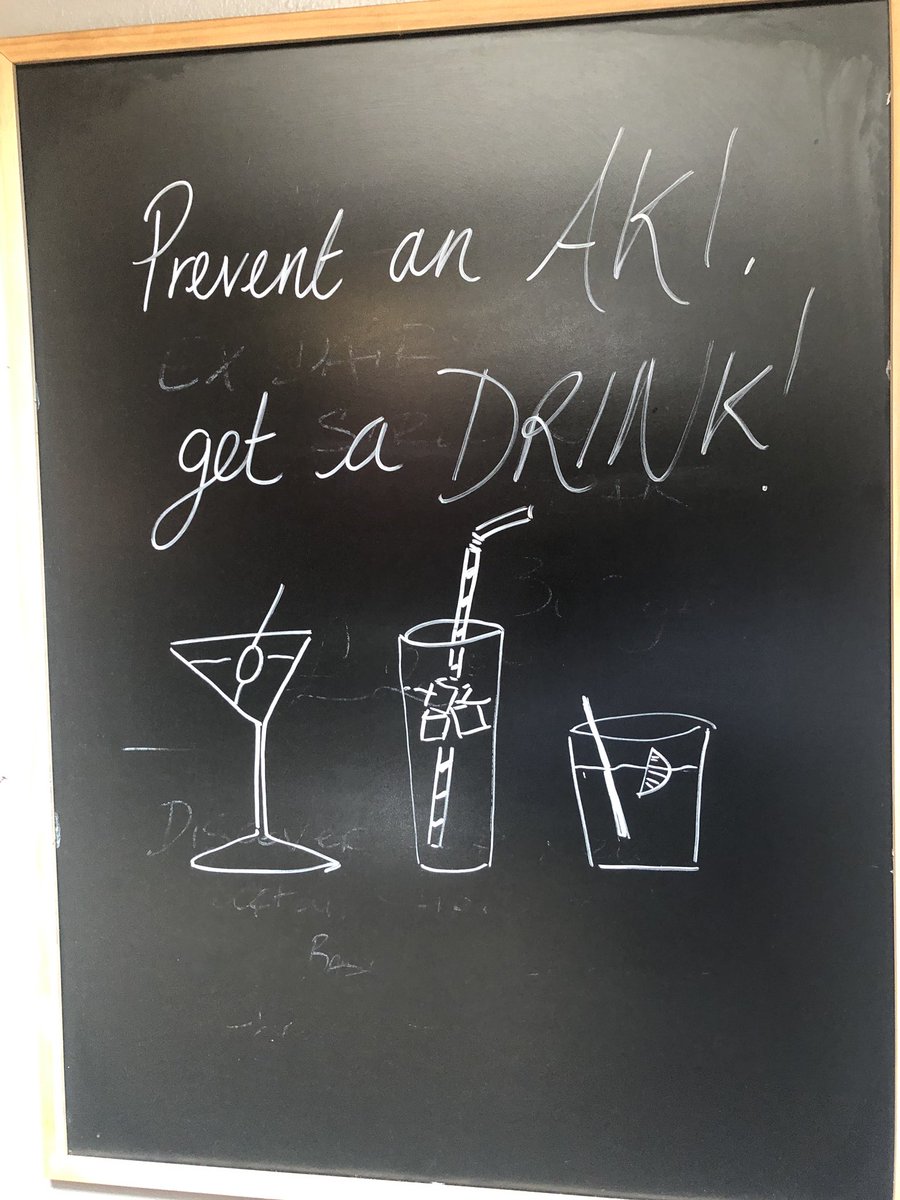 Prevent an AKI.
get a DRINK!